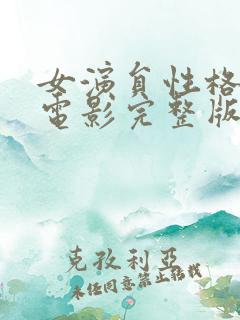 女演員性格
電影完整版
克孜利亞
未任同意禁止轉載